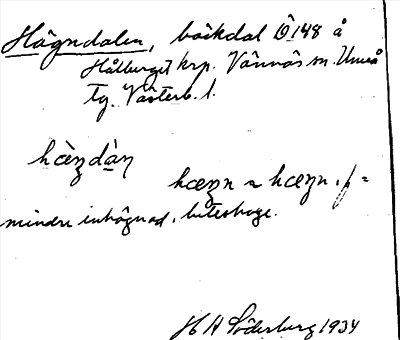 Hägndalen, bäckdal Ö 148 å
Hålberget krp. Vännäs sn. Umeå
tg. Västerb. l.
hæ̀ŋdàɳ
hæŋn ~ hæŋn, f =
mindre inhägnad, beteshage.
H A Söderberg 1934